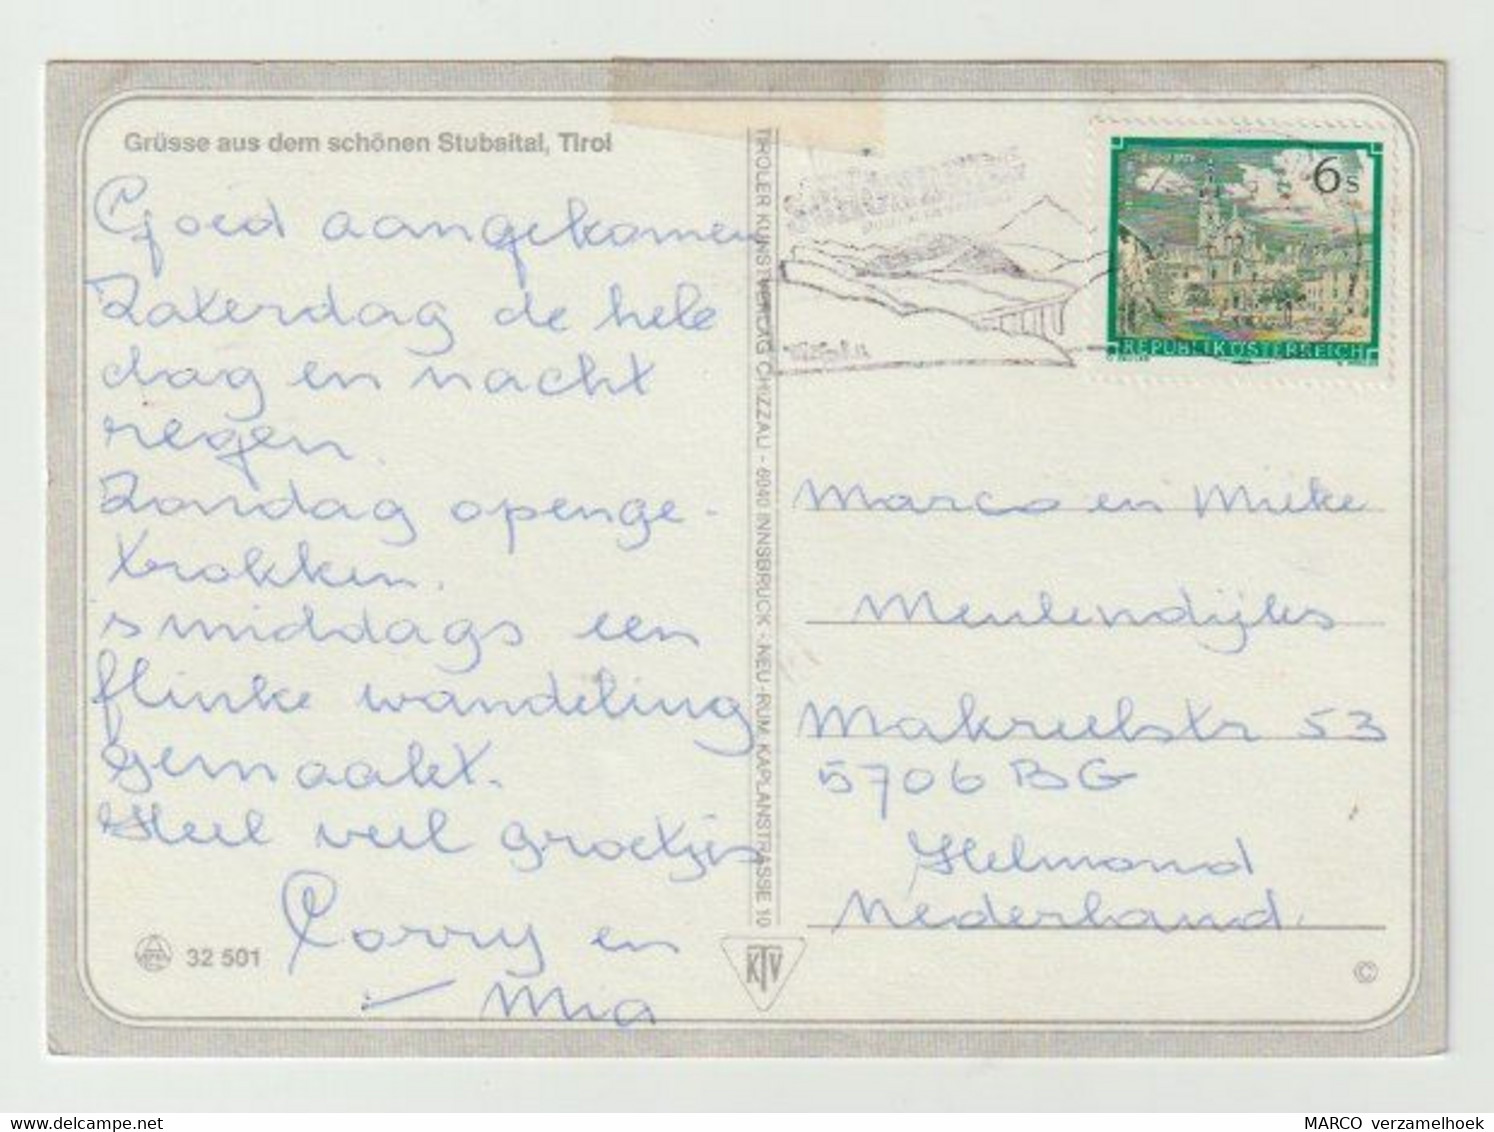 Grüsse aus dem schönen Stubaital, Tirol
Goed aangekomen
Zaterdag de hele
dag en nacht
regen.
Zondag openge-
trokken.
smiddags een
flinke wandeling
gemaakt.
Heel veel groetjes
Corry en
Mia
32 501
TIROLER KUNSTVERLAG CHIZZALI - 6040 INNSBRUCK - NEU-RUM, KAPLANSTRASSE 10
KTV
6 S
REPUBLIK ÖSTERREICH
Marco en Mieke
Meulendijks
Makreelstr 53
5706 BG
Helmond
Nederland.
©
MARCO verzamelhoek